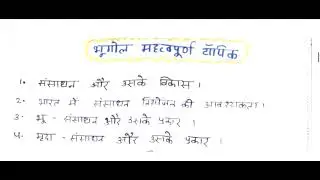 भूगोल महत्वपूर्ण टॉपिक
1. संसाधन और उसके विकास।
2. भारत में संसाधन नियोजन की आवश्यकता।
3. भू-संसाधन और उसके प्रकार।
4. मृदा-संसाधन और उसके प्रकार।